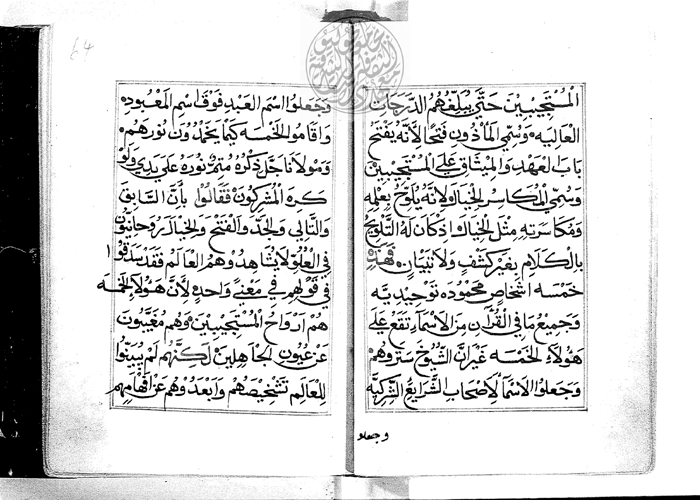 المستجيبين حتى يبلغهم الدرجات
العاليه وسمي المأذون فتحا لأنه يفتح
باب العهد والميثاق على المستجيبين
وسمي المكاسر الخيال لانه يلوح بعلمه
ومكاسرته مثل الخيال اذ كان له التلويح
بالكلام بغير كشف ولا تبيان فهذه
خمسه اشخاص محموده توحيديه
وجميع ما في القرآن من الاسماء تقع على
هؤلاء الخمسه غير ان الشيوخ ستروهم
وجعلوا الاسماء لاصحاب الشرايع الشركيه
وجعلو
64
وجعلوا اسم العبد فوق اسم المعبود
واقاموا الخمسه كيما يخمدون نورهم
ومولانا جل ذكره متم نوره على يدي ولو
كره المشركون فقالوا بأن السابق
والتالي والجد والفتح والخيال روحانيون
في العلو لا يشاهدوهم العالم فقد صدقوا
في قولهم في معنى واحده لان هؤلاء الخمسه
هم ارواح المستجيبين وهم مغيبون
عن عيون الجاهلين لكنهم لم يبينوا
للعالم تشخيصهم وابعدوهم عن افهامهم